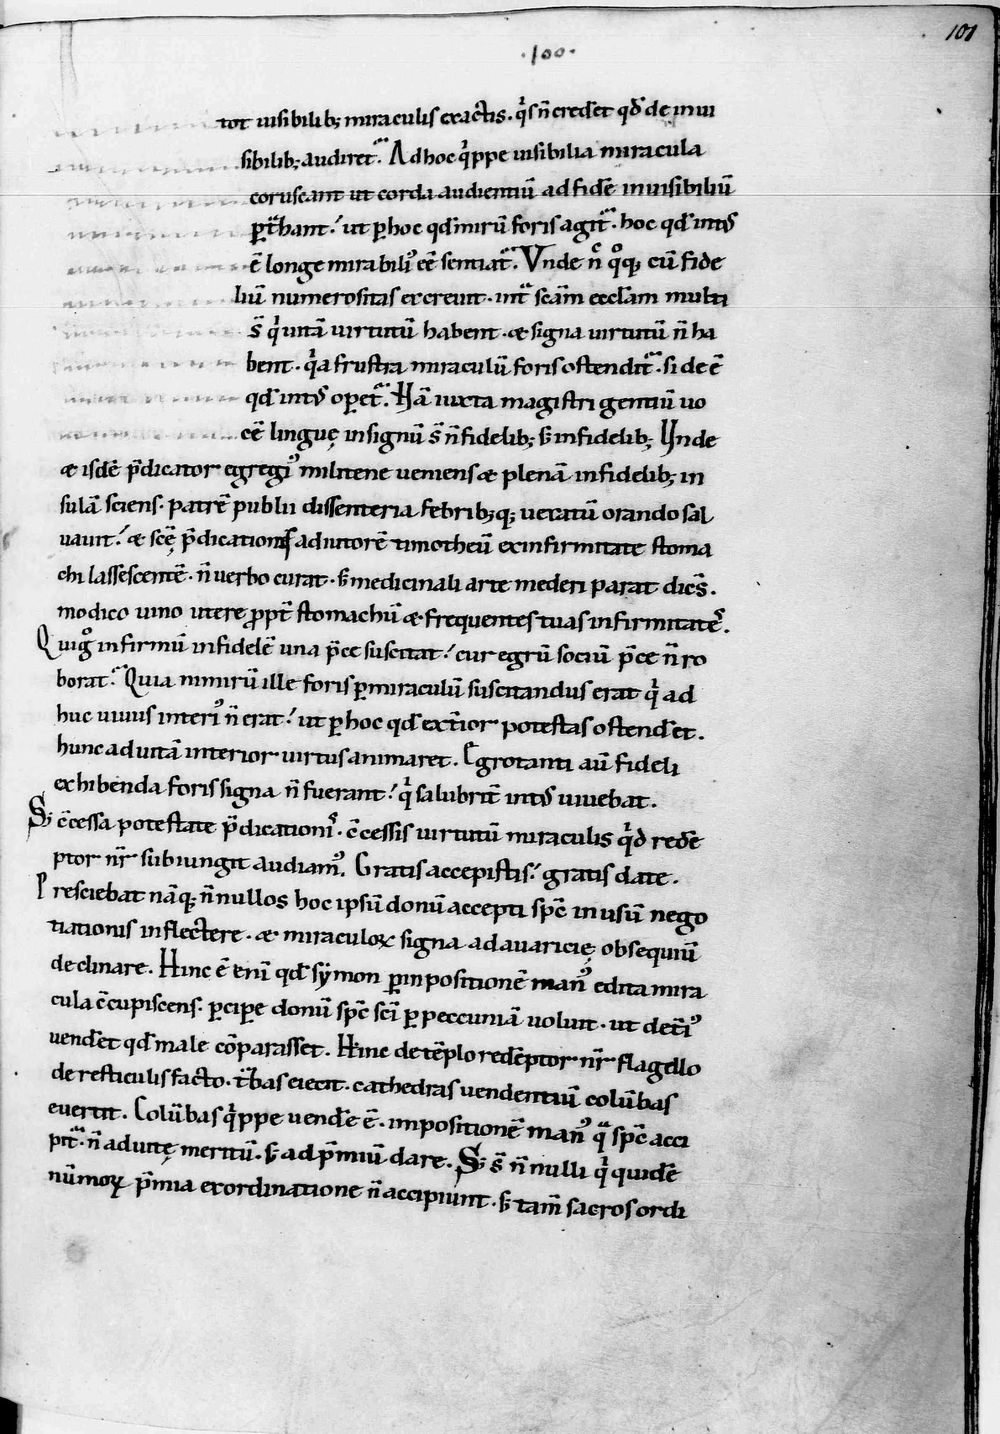 101
·100·
tot uisibilib; miraculis exactis. q̓s n̄ crederet qd̄ de inui
sibilib; audiret᷒. Ad hoc q̓ppe uisibilia miracula
coruscant ut corda audientiū ad fidē inuisibiliū
ꝑt̄hant.' ut ꝑ hoc qd̄ mirū foris agit᷒. hoc qd̄ int᷒
ē longe mirabili᷒ eē sentiat᷒. Vnde n̄c q̊q; cū fide
liū numerositas excreuit. int᷒ scām eccl̄am multi
s̄ q̓ uitā uirtutū habent. æ signa uirtutū n̄ ha
bent. q̓a frustra miraculū foris ostendit᷒. si deē
qd̄ int᷒ oꝑet᷒. Nā iuxta magistri gentiū uo
cē linguę in signū s̄ n̄ fidelib; s; infidelib; Unde
æ isdē p̄dicator egregi᷒ militene ueniens æ plenā infidelib; in
sulā sciens. patrē publii dissenteria febrib;q; uexatū orando sal
uauit.' æ scē p̄dicationis adiutorē timotheū ex infirmitate stoma
chi lassescentē. n̄ uerbo curat. s; medicinali arte mederi parat dicēs.
modico uino utere ꝓpt̄ stomachū æ frequentes tuas infirmitatē᷒.
Qui g̊ infirmū infidelē una p̄ce suscitat.' cur egrū sociū p̄ce n̄ ro
borat.᷒ Quia nimirū ille foris ꝑ miraculū suscitandus erat q̓ ad
huc uiuus interi᷒ n̄ erat.' ut ꝑ hoc qd̄ ext̄ior potestas ostend̄et.
hunc ad uitā interior uirtus animaret. Egrotanti aū fideli
exhibenda foris signa n̄ fuerant.' q̓ salubrit̄ int᷒ uiuebat.
S; c̄cessa potestate p̄dication᷒. c̄cessis uirtutū miraculis q̓d redē
ptor nr̄ subiungit audiam᷒. Gratis accepistis.' gratis date.
Presciebat nāq; n̄nullos hoc ipsū donū accepti sp̄c in usū nego
tiationis inflectere. æ miraculoꝝ signa ad auaricię obsequiū
declinare. Hinc ē enī qd̄ symon ꝑ inpositionē man᷒ edita mira
cula c̄cupiscens. ꝑciꝑe donū sp̄c sc̄i ꝑ peccuniā uoluit. ut det̄i᷒
uend̄et qd̄ male cōparasset. Hinc de tēplo redēptor nr̄ flagello
de resticulis facto. t̄bas eiecit. cathedras uendentiū colūbas
euertit. Colūbas q̓ppe uend̄e ē. impositionē man᷒ q̓ sp̄c acci
pit᷒. n̄ ad uitę meritū. s; ad p̄miū dare. S; s̄ n̄nulli q̓ quidē
nūmoꝝ p̄mia ex ordinatione n̄ accipiunt. s; tam̄ sacros ordi